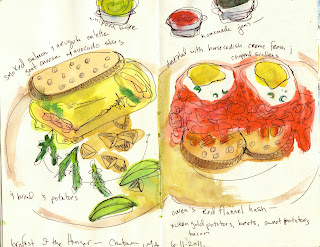 homemade jams
smoked salmon & arugula omelette
goat cheese & avocado slices
topped with horseradish creme fraiche &
chopped scallions
& bread & potatoes
owen's Red flannel hash —
yukon gold potatoes, beets, sweet potatoes
bacon
breakfast @ the Hangar — Chatham, MA
6.11.2011